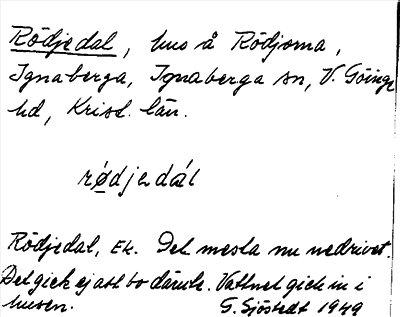 Rödjedal, hus å Rödjorna,
Ignaberga, Ignaberga sn, V. Göinge
hd, Krist. län.
rødjedál
Rödjedal, Ek. Det mesta nu nedrivet.
Det gick ej att bo därute. Vattnet gick in i
husen. G. Sjöstedt 1949